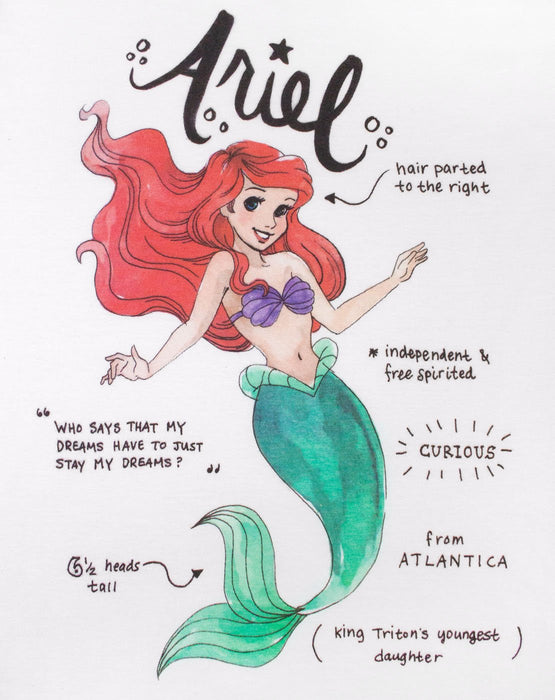 Ariel
hair parted
to the right
* independent &
free spirited
"WHO SAYS THAT MY
DREAMS HAVE TO JUST
STAY MY DREAMS?"
CURIOUS
from
ATLANTICA
6 1/2 heads
tall
(king Triton's youngest
daughter)